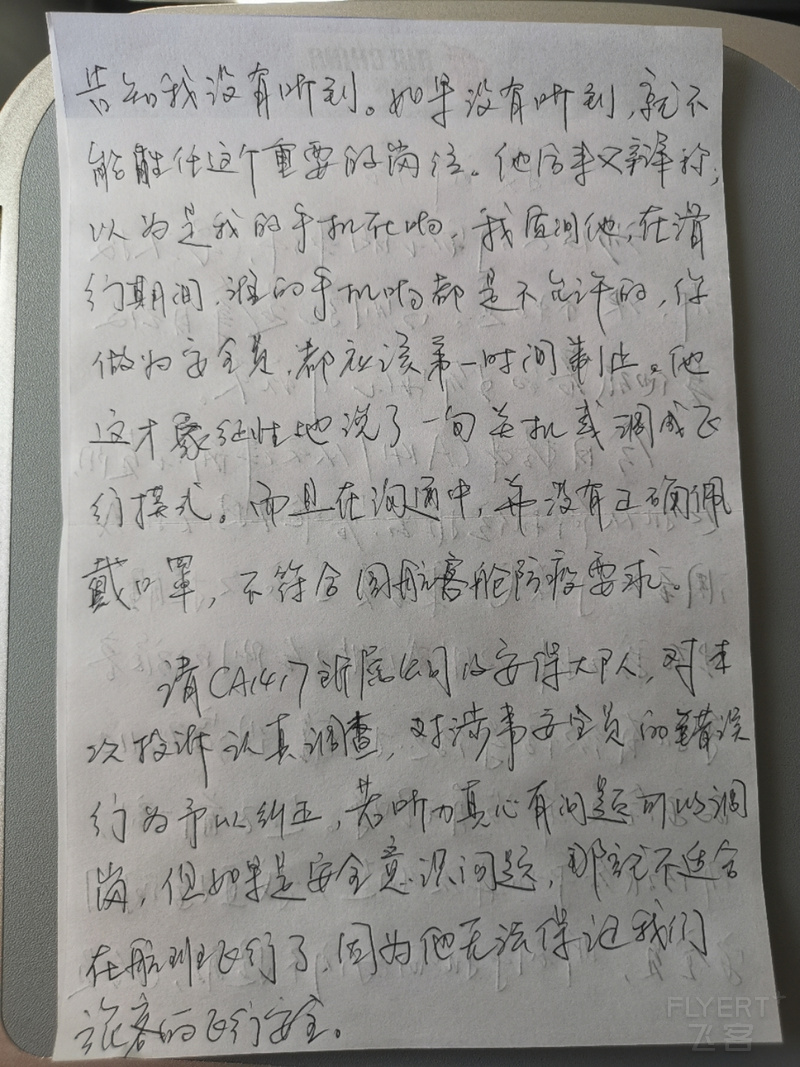 告知我没有听到。如果没有听到，就不
能胜任这个重要的岗位。他后来又辩称，
以为是我的手机在响，我质问他，在滑
行期间，谁的手机响都是不允许的，你
做为安全员，都应该第一时间制止。他
这才象征性地说了一句关机或调成飞
行模式。而且在沟通中，并没有正确佩
戴口罩，不符合国航客舱防疫要求。
请CA1417所属公司及安保大队，对本
次投诉认真调查，对涉事安全员的错误
行为予以纠正，若听力真心有问题可以调
岗，但如果是安全意识问题，那就不适合
在航班飞行了，因为他无法保证我们
旅客的飞行安全。
FLYERT
飞客